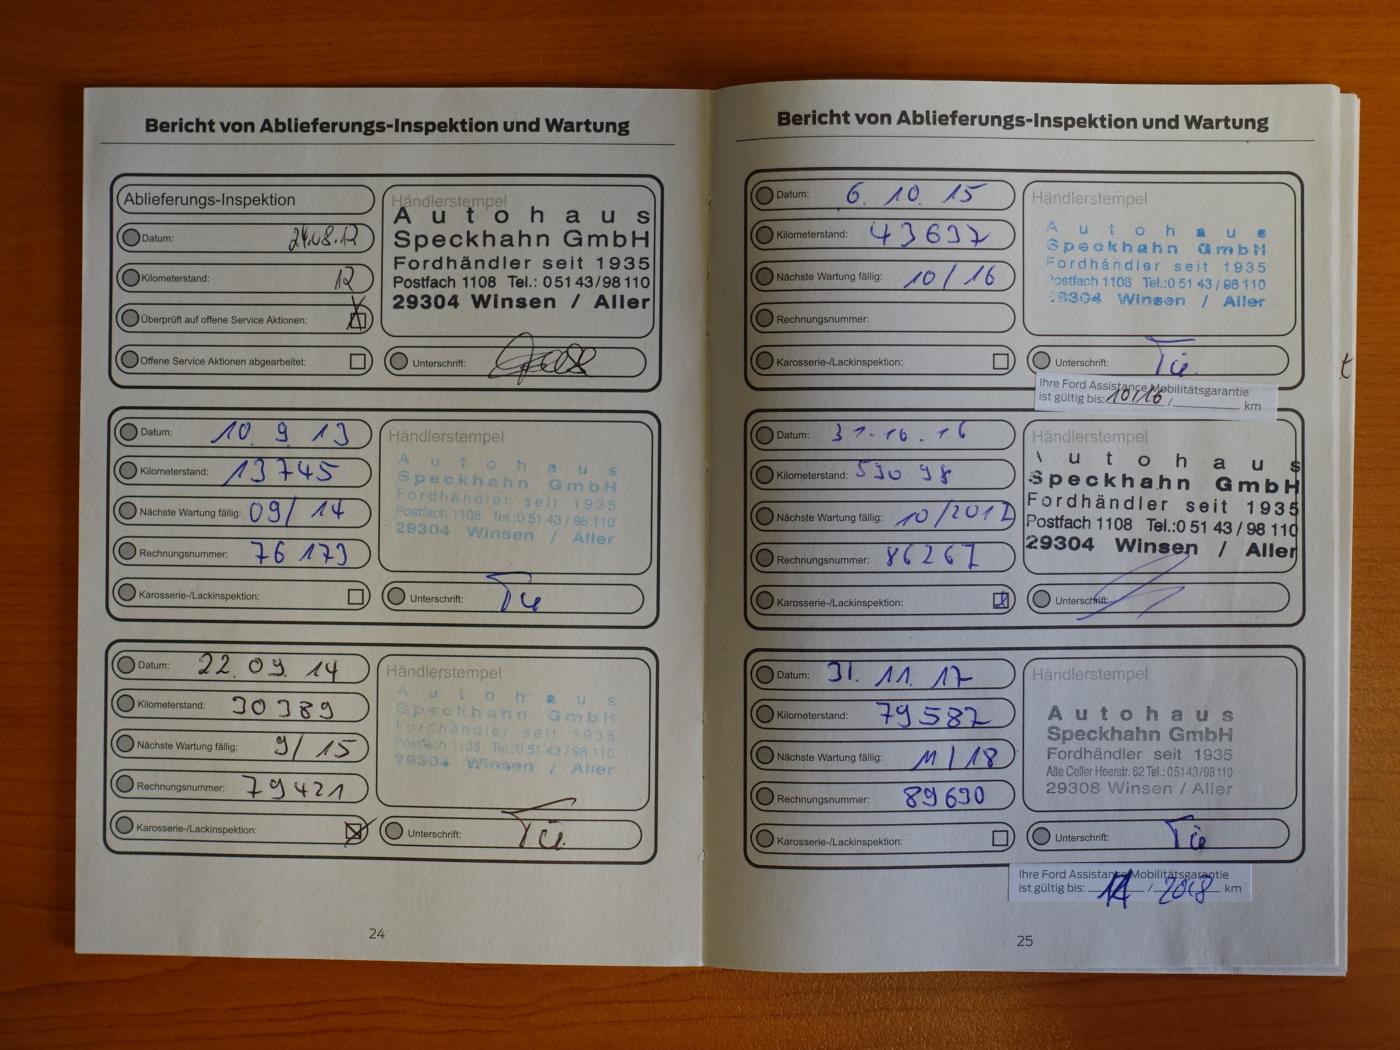 Bericht von Ablieferungs-Inspektion und Wartung
Ablieferungs-Inspektion
Datum: 24.08.12
Kilometerstand: 12
Überprüft auf offene Service Aktionen:
Offene Service Aktionen abgearbeitet:
Händlerstempel
Autohaus
Speckhahn GmbH
Fordhändler seit 1935
Postfach 1108 Tel.: 0 51 43/98 110
29304 Winsen / Aller
Unterschrift:
Datum: 10. 9. 13
Kilometerstand: 13745
Nächste Wartung fällig: 09/14
Rechnungsnummer: 76173
Karosserie-/Lackinspektion:
Händlerstempel
Autohaus
Speckhahn GmbH
Fordhändler seit 1935
Postfach 1108 Tel.:0 51 43/98 110
29304 Winsen / Aller
Unterschrift:
Datum: 22.09.14
Kilometerstand: 30389
Nächste Wartung fällig: 9/15
Rechnungsnummer: 79421
Karosserie-/Lackinspektion:
Händlerstempel
Autohaus
Speckhahn GmbH
Fordhändler seit 1935
Postfach 1108 Tel.:0 51 43/98 110
29304 Winsen / Aller
Unterschrift:
24
Bericht von Ablieferungs-Inspektion und Wartung
Datum: 6. 10. 15
Kilometerstand: 43637
Nächste Wartung fällig: 10/16
Rechnungsnummer:
Karosserie-/Lackinspektion:
Händlerstempel
Autohaus
Speckhahn GmbH
Fordhändler seit 1935
Postfach 1108 Tel.:0 51 43/98 110
29304 Winsen / Aller
Unterschrift:
Ihre Ford Assistance Mobilitätsgarantie
ist gültig bis: 10/16 / km
Datum: 31.10.16
Kilometerstand: 59098
Nächste Wartung fällig: 10/2017
Rechnungsnummer: 86267
Karosserie-/Lackinspektion:
Händlerstempel
Autohaus
Speckhahn GmbH
Fordhändler seit 1935
Postfach 1108 Tel.:0 51 43/98 110
29304 Winsen / Aller
Unterschrift:
Datum: 31. 11. 17
Kilometerstand: 79587
Nächste Wartung fällig: 11/18
Rechnungsnummer: 89690
Karosserie-/Lackinspektion:
Händlerstempel
Autohaus
Speckhahn GmbH
Fordhändler seit 1935
Alte Celler Heerstr. 62 Tel.: 05143/98110
29308 Winsen / Aller
Unterschrift:
Ihre Ford Assistance Mobilitätsgarantie
ist gültig bis: / 2018 km
25